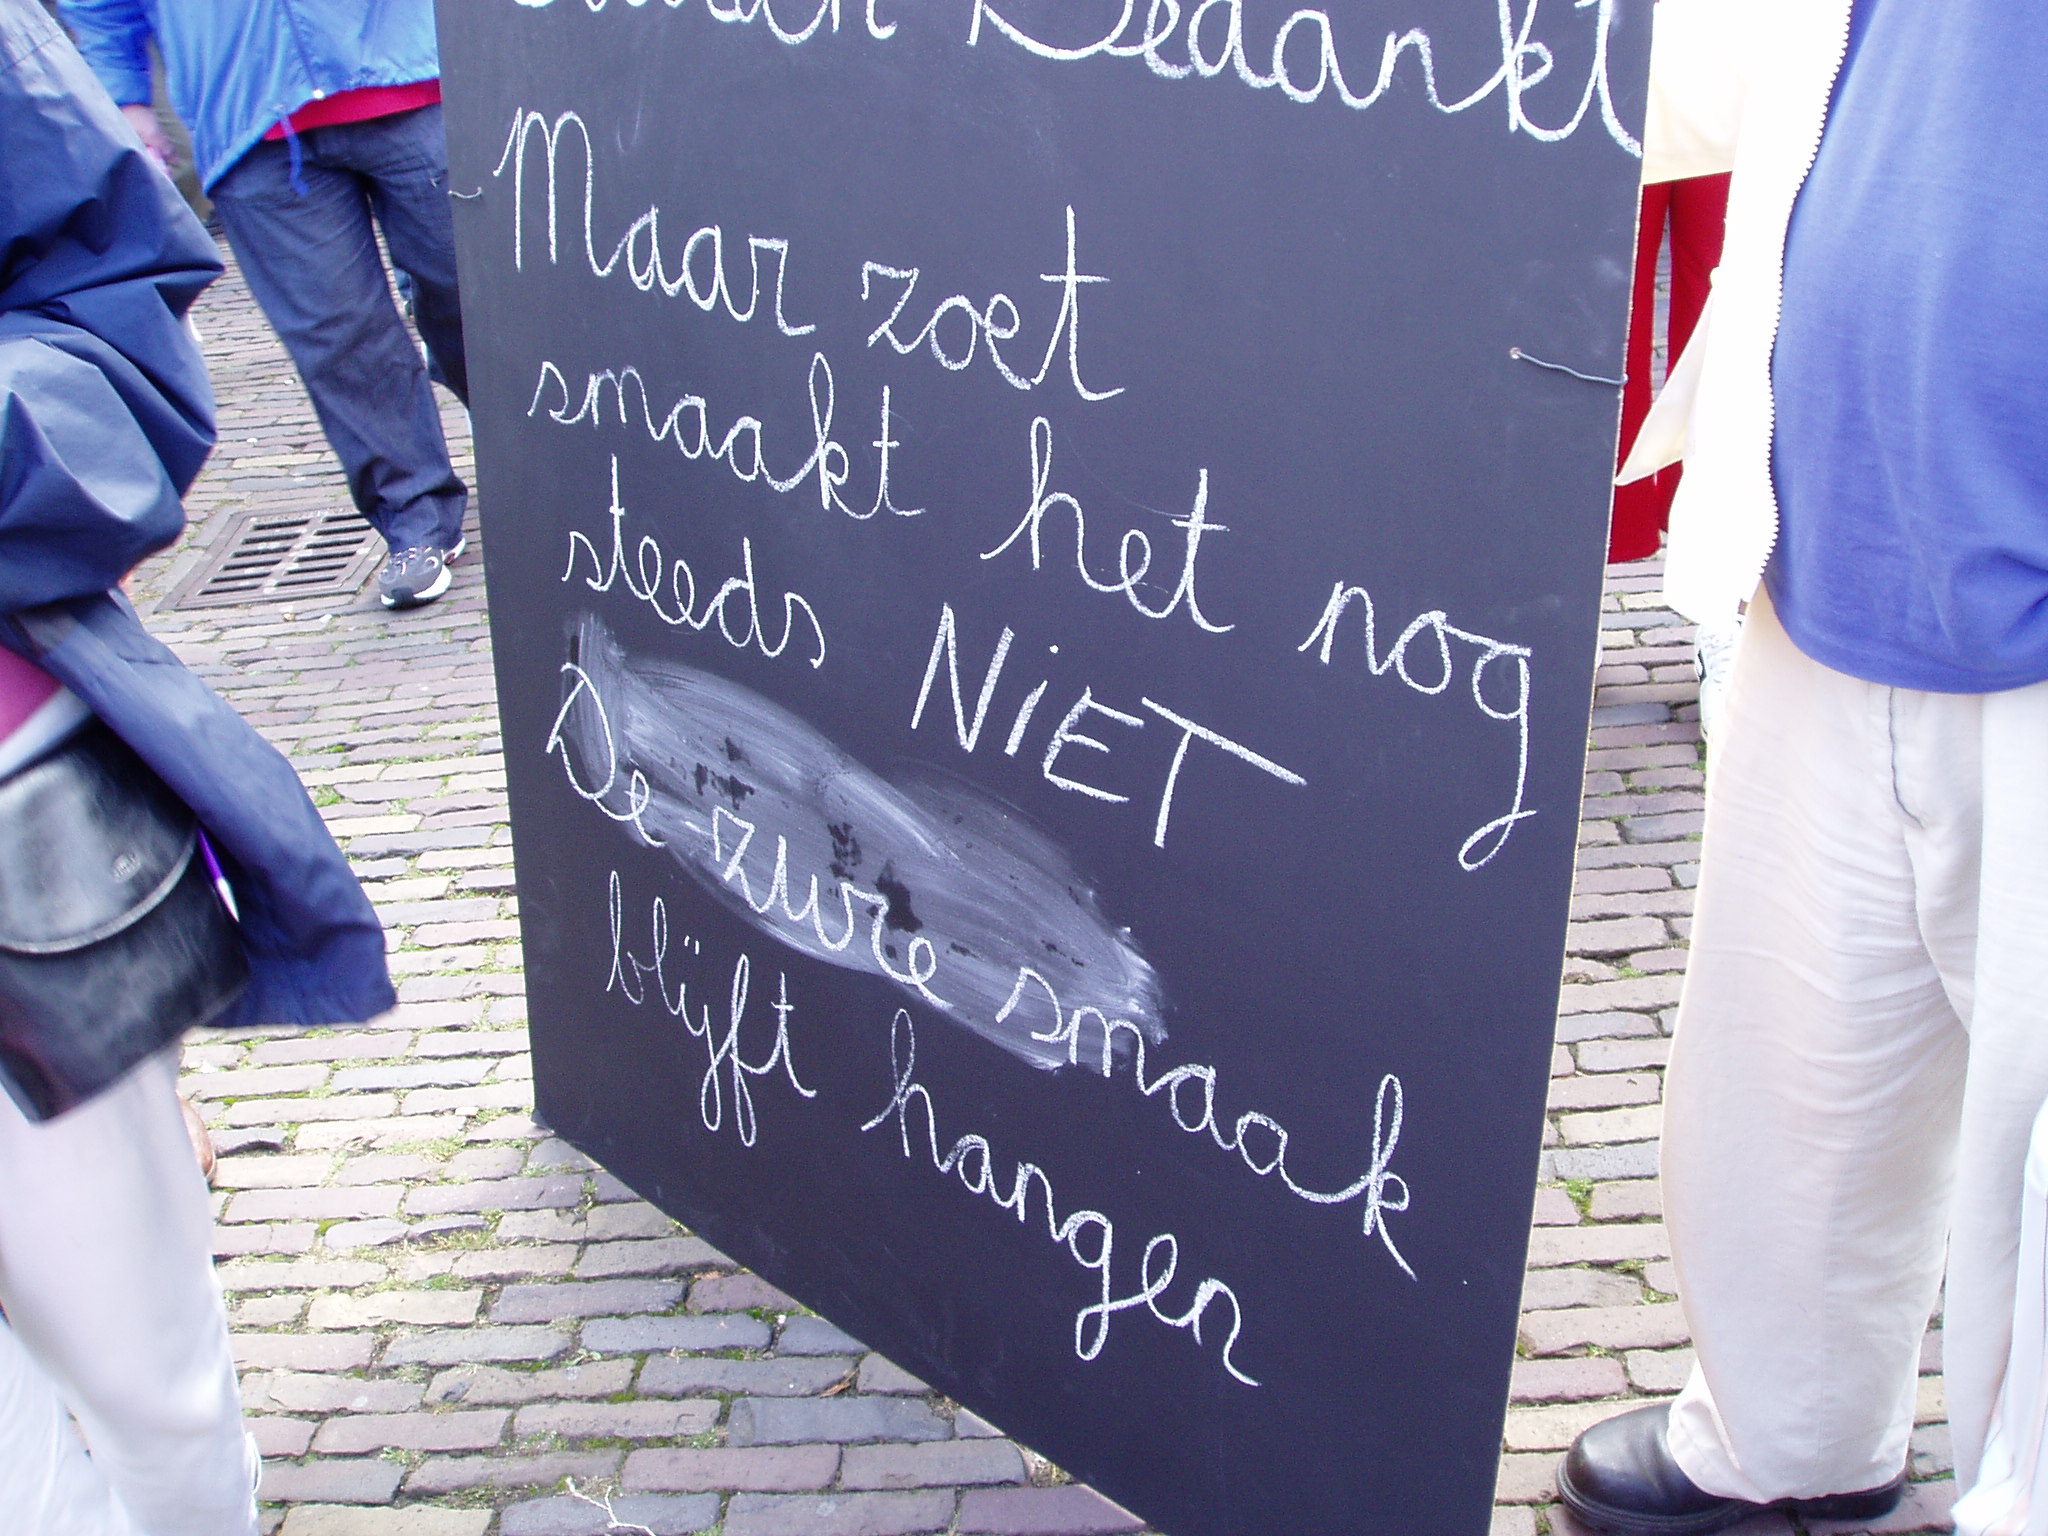 Bedankt
Maar zoet
smaakt het nog
steeds NiET
De zure smaak
blijft hangen